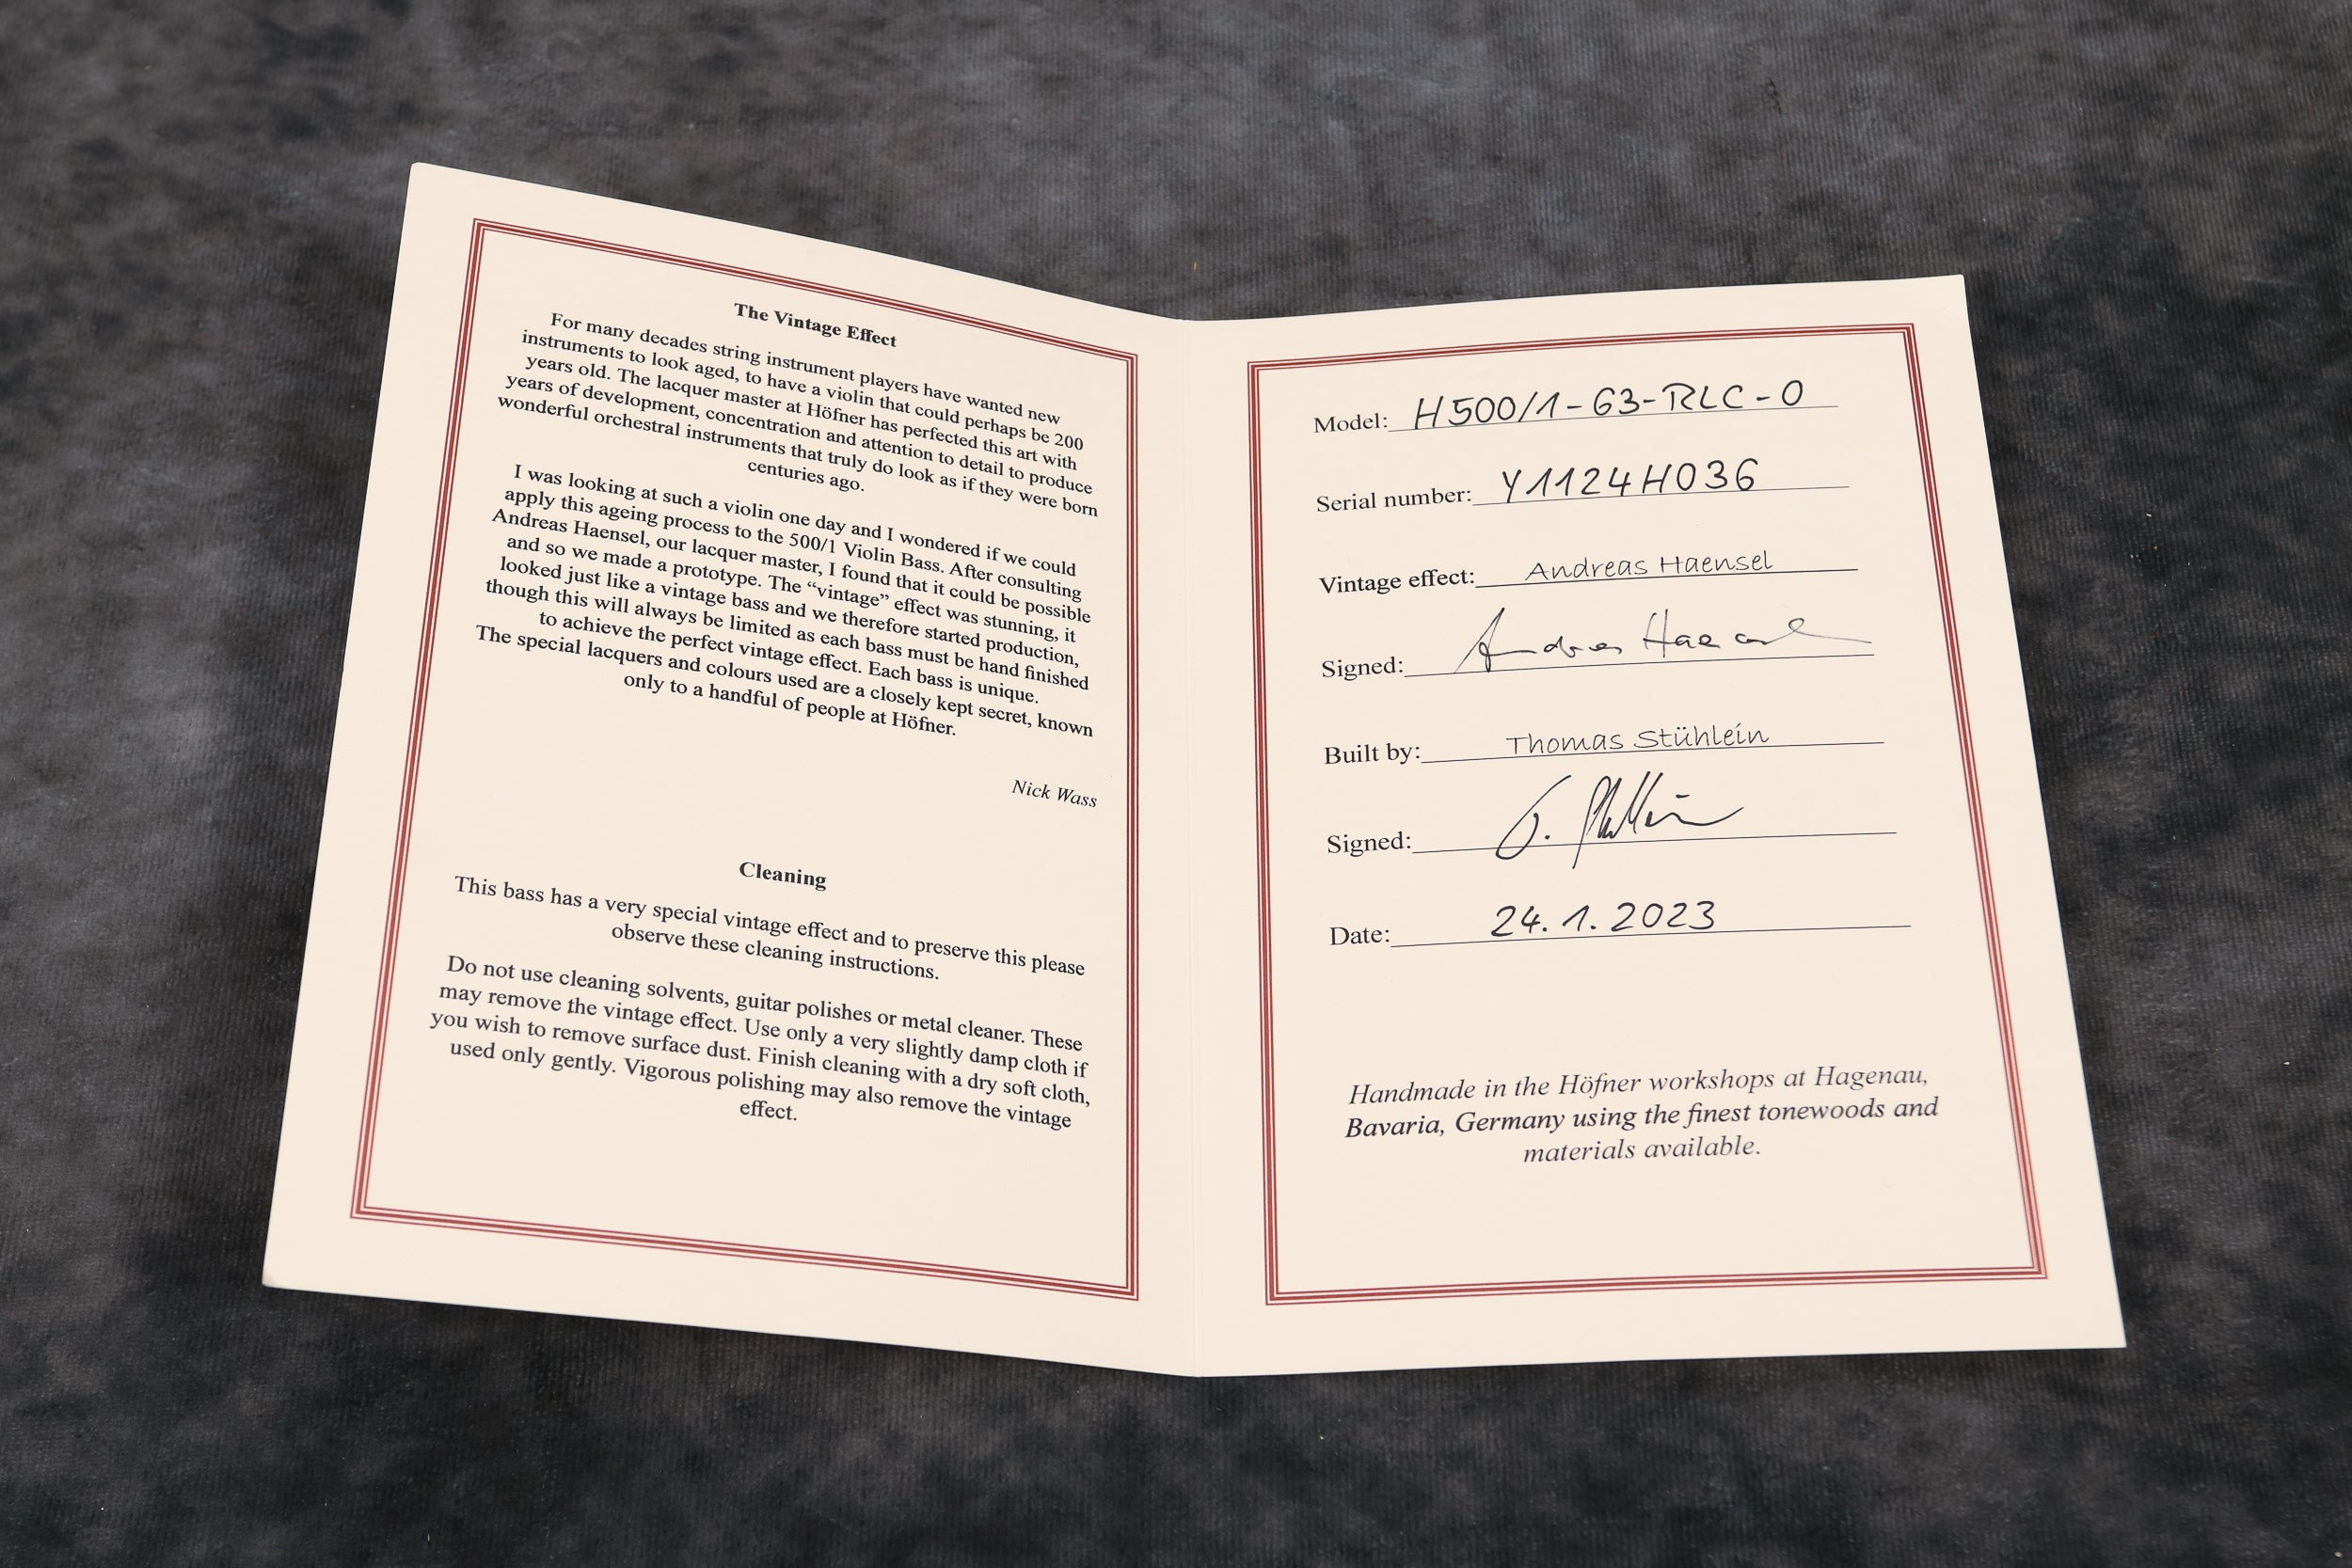 The Vintage Effect
For many decades string instrument players have wanted new
instruments to look aged, to have a violin that could perhaps be 200
years old. The lacquer master at Höfner has perfected this art with
years of development, concentration and attention to detail to produce
wonderful orchestral instruments that truly do look as if they were born
centuries ago.
I was looking at such a violin one day and I wondered if we could
apply this ageing process to the 500/1 Violin Bass. After consulting
Andreas Haensel, our lacquer master, I found that it could be possible
and so we made a prototype. The “vintage” effect was stunning, it
looked just like a vintage bass and we therefore started production,
though this will always be limited as each bass must be hand finished
to achieve the perfect vintage effect. Each bass is unique.
The special lacquers and colours used are a closely kept secret, known
only to a handful of people at Höfner.
Nick Wass
Cleaning
This bass has a very special vintage effect and to preserve this please
observe these cleaning instructions.
Do not use cleaning solvents, guitar polishes or metal cleaner. These
may remove the vintage effect. Use only a very slightly damp cloth if
you wish to remove surface dust. Finish cleaning with a dry soft cloth,
used only gently. Vigorous polishing may also remove the vintage
effect.
Model: H500/1-63-RLC-0
Serial number: Y1124H036
Vintage effect: Andreas Haensel
Signed: Andreas Haensel
Built by: Thomas Stühlein
Signed:
Date: 24.1.2023
Handmade in the Höfner workshops at Hagenau,
Bavaria, Germany using the finest tonewoods and
materials available.